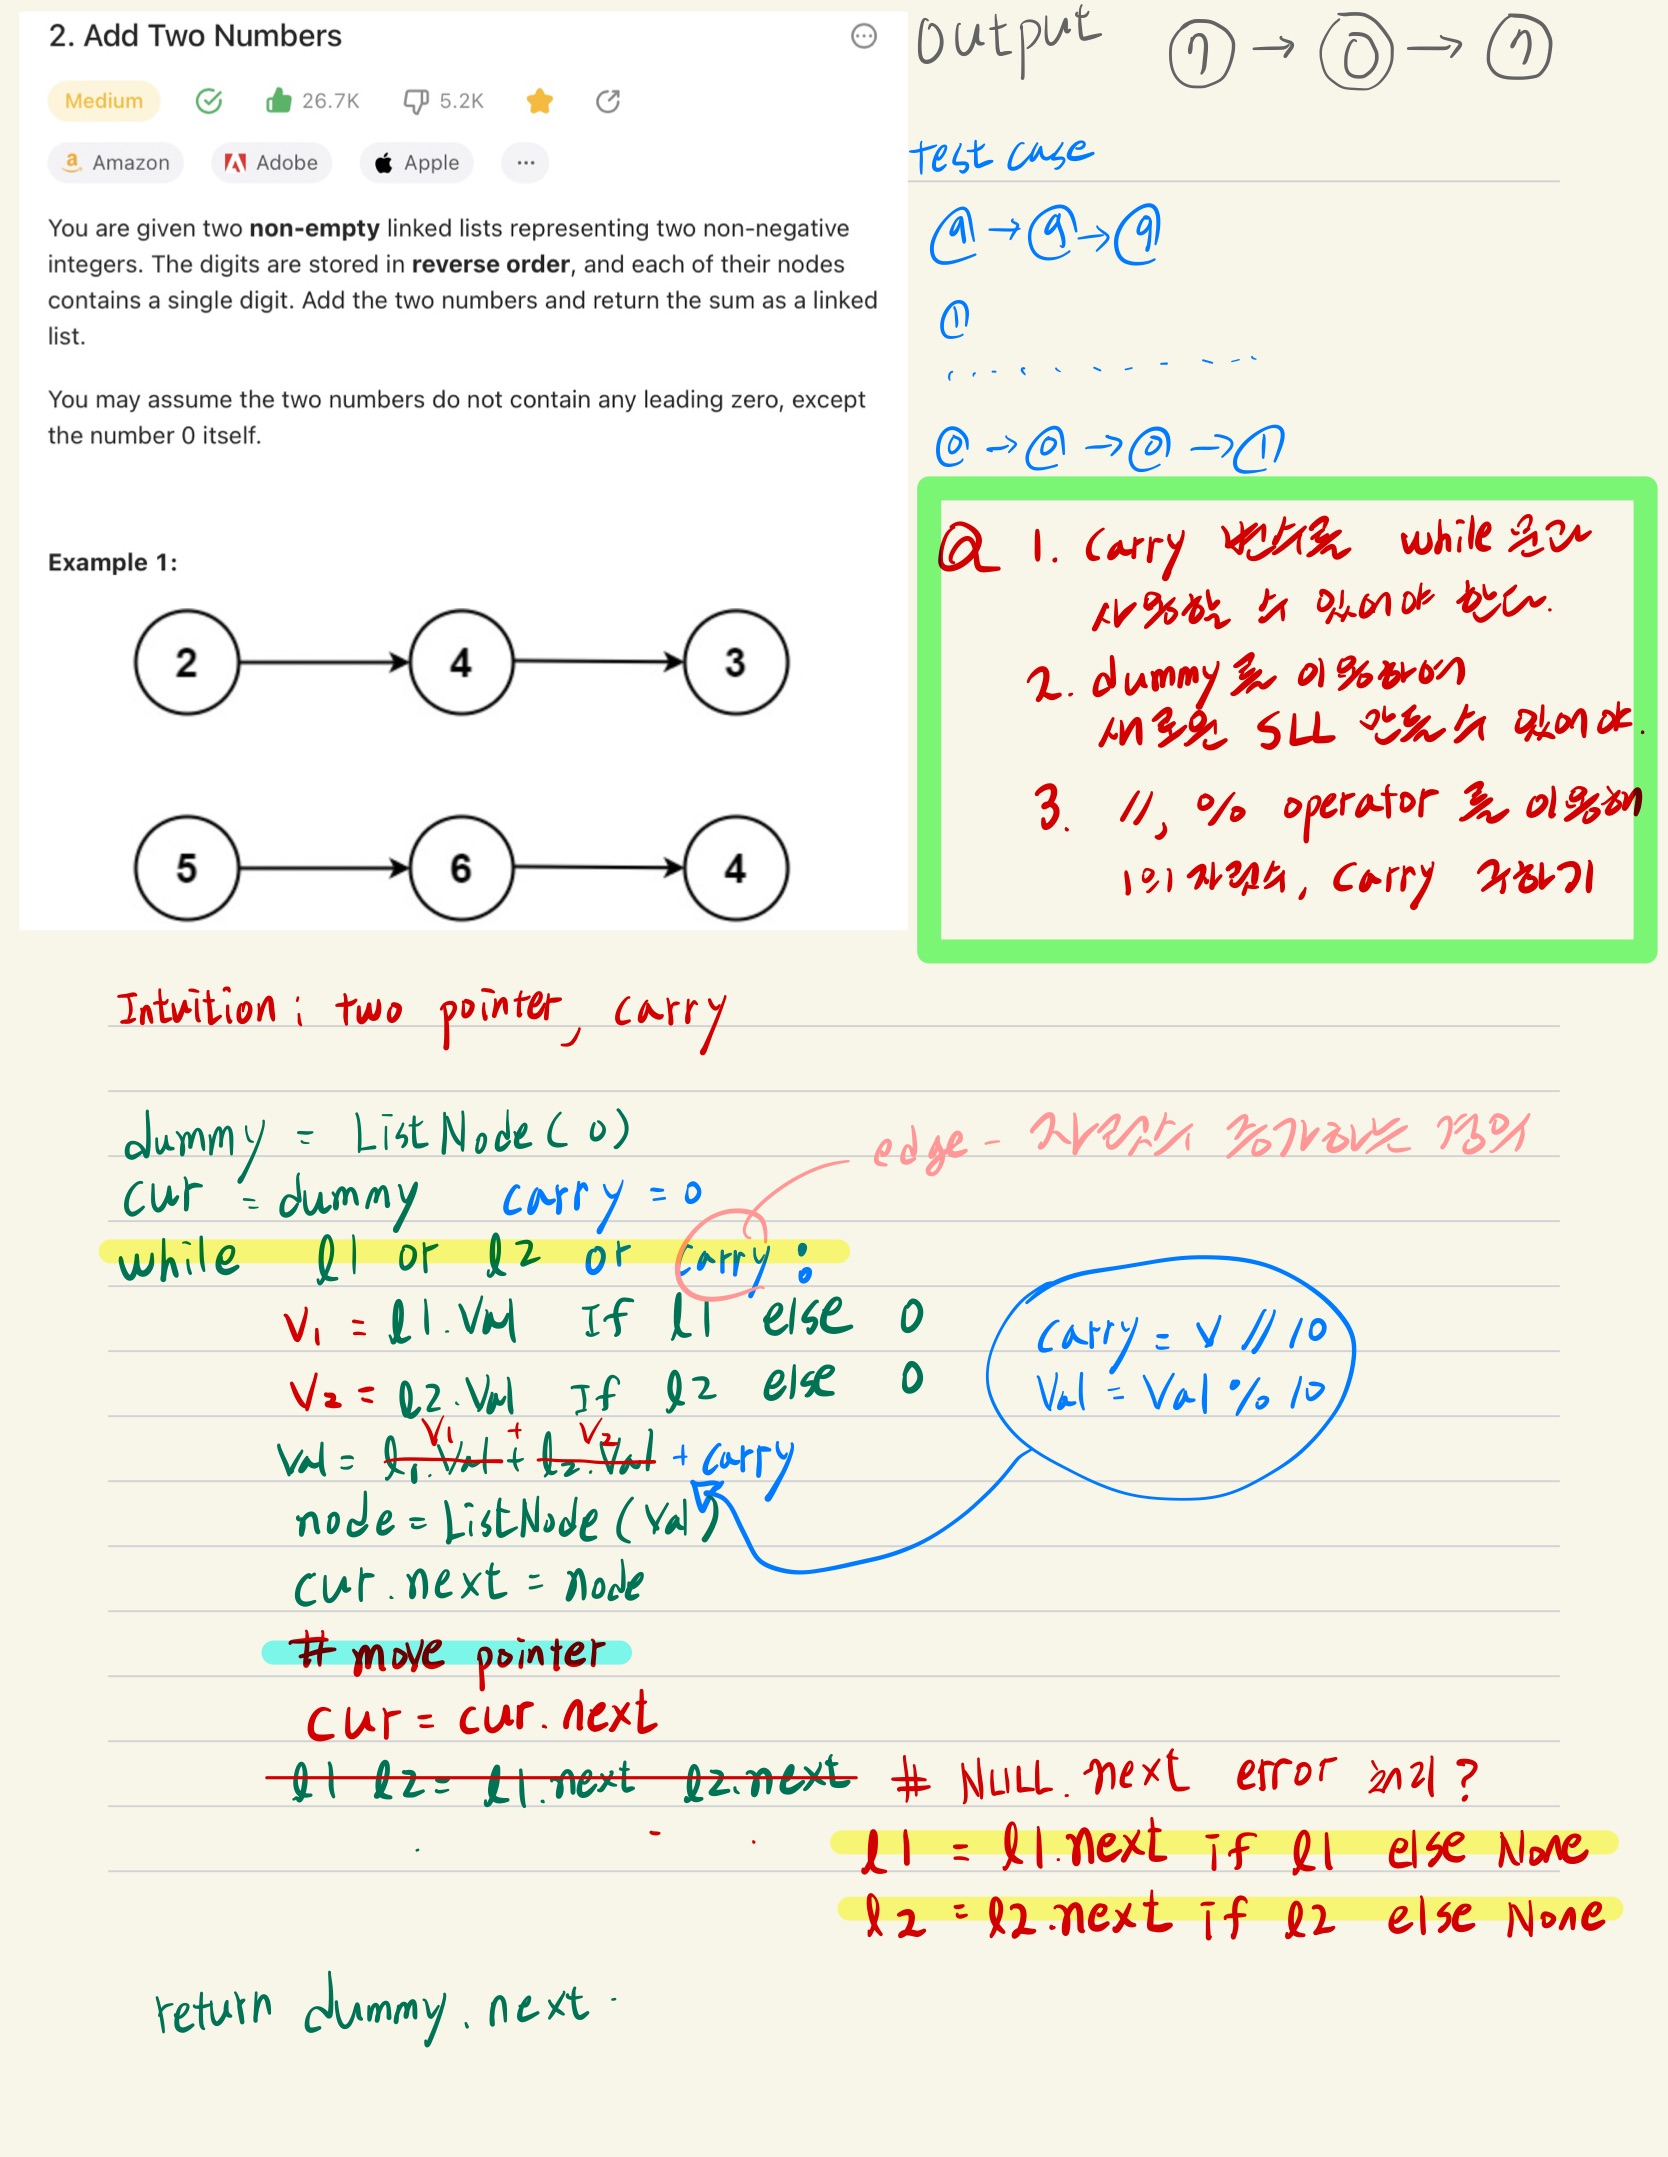 2. Add Two Numbers
Medium 26.7K 5.2K
Amazon Adobe Apple ...
You are given two non-empty linked lists representing two non-negative
integers. The digits are stored in reverse order, and each of their nodes
contains a single digit. Add the two numbers and return the sum as a linked
list.
You may assume the two numbers do not contain any leading zero, except
the number 0 itself.
Example 1:
2 4 3
5 6 4
output 7 → 0 → 7
test case
9 → 9 → 9
1
0 → 0 → 0 → 1
Q 1. Carry 변수를 while 문과
사용할 수 있어야 한다.
2. dummy를 이용하여
새로운 SLL 만들 수 있어야.
3. //, % operator를 이용해
1의 자릿수, Carry 구하기
Intuition: two pointer, carry
dummy = ListNode(0)
edge - 자릿수 증가하는 경우
cur = dummy carry = 0
while l1 or l2 or carry:
V1 = l1.Val If l1 else 0
V2 = l2.Val If l2 else 0
carry = v // 10
Val = Val % 10
V1 + V2
Val = l1.Val + l2.Val + carry
node = ListNode(Val)
cur.next = node
# move pointer
cur = cur.next
l1 l2 = l1.next l2.next # NULL.next error 처리?
l1 = l1.next if l1 else None
l2 = l2.next if l2 else None
return dummy.next